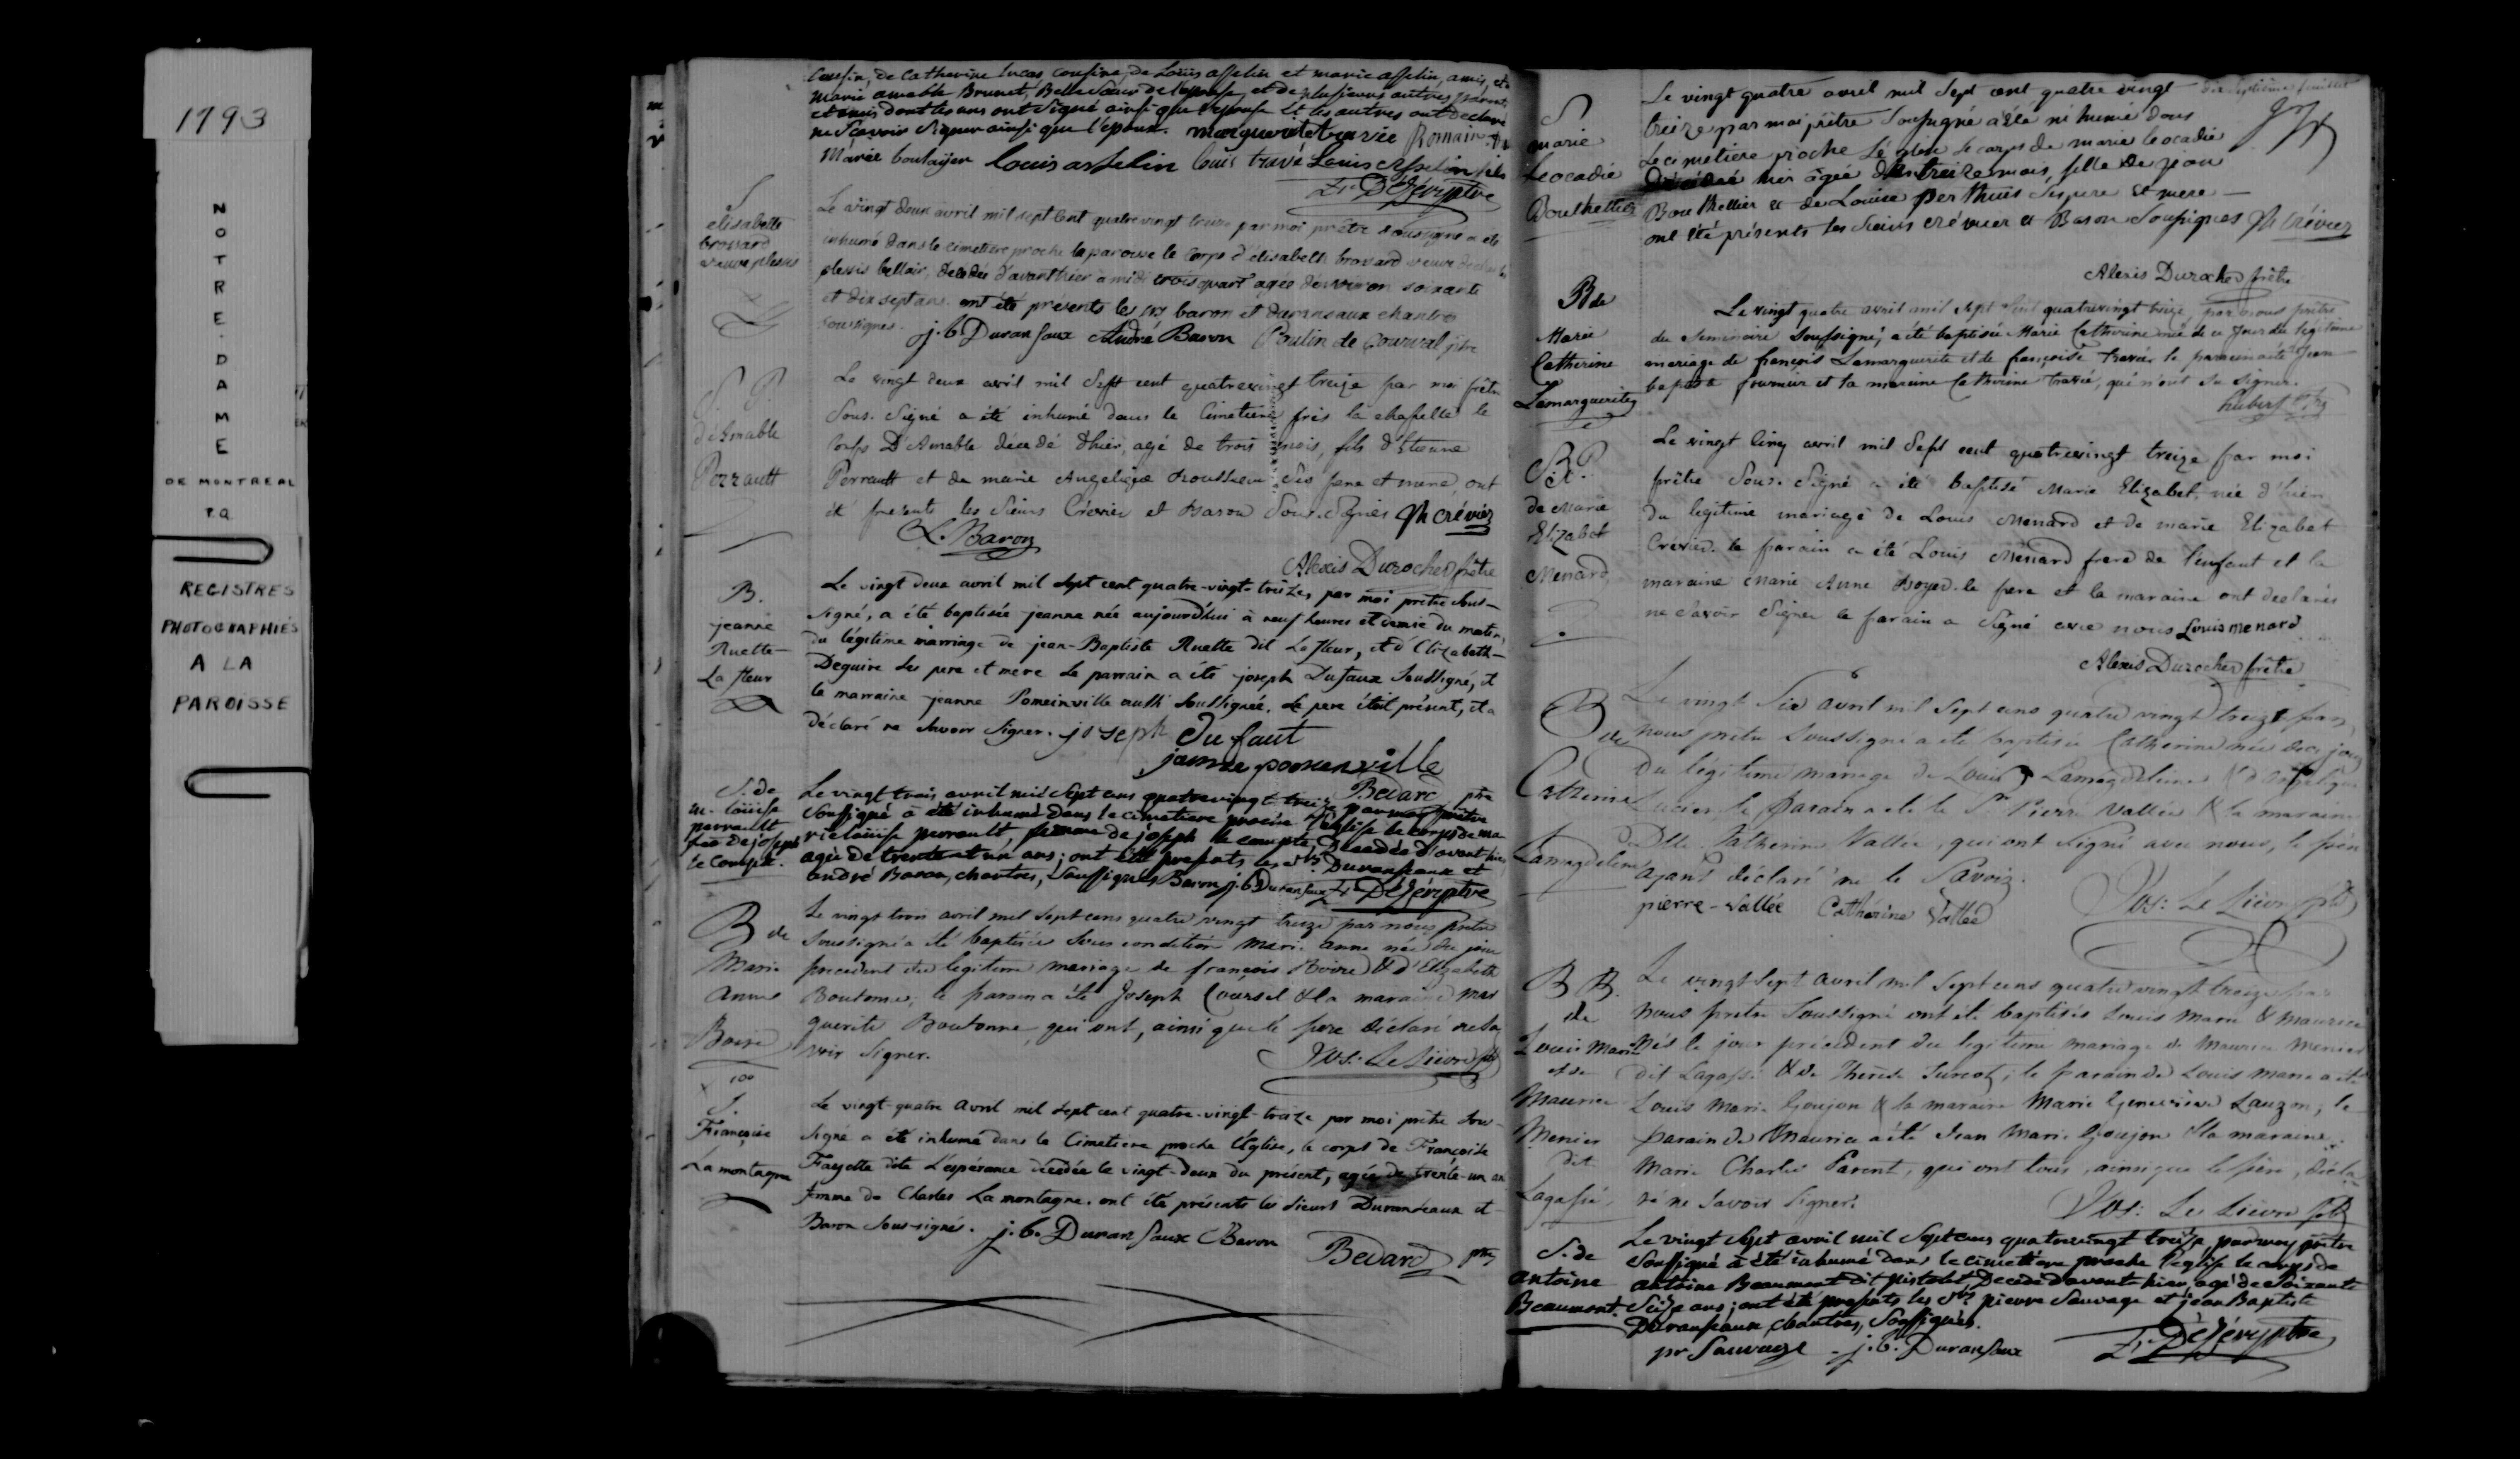 1793
NOTRE-DAME
DE MONTREAL
P.Q.
REGISTRES
PHOTOGRAPHIÉS
A LA
PAROISSE
Cousin, de Catherine lucas, cousine, de Louis asselin et marie asselin, amis, et
marie amable Brunet, Belle Soeur de l'epouse, et de plusieurs autres parens
et amis dont les uns ont signé ainsi que l'epouse Et les autres ont declaré
ne Scavoir Signer ainsi que l'epoux. marguerite travée Romain
Marie boulaijer Louis asselin louis travé Louis asselin fils
Fr. Déjéry ptre
S
elisabethe
brossard
veuve plessis
Le vingt deux avril mil sept cent quatre vingt treize par moi prêtre soussigné a été
inhumé dans le cimetiere proche la paroisse le corps d'elisabeth brossard veuve de charles
plessis bellair, décédée d'avant hier à midi trois quart agée d'environ soixante
et dix sept ans. ont été présents les srs baron et duranseaux chantres
soussignés. j. b. Duransaux André Baron Poulin de Courval ptre
S. P.
d'Amable
Perrault
Le vingt deux avril mil sept cent quatrevingt treize par moi prêtre
Sous-Signé a été inhumé dans le Cimetiere près la chapelle le
corps D'Amable décedé d'hier, agé de trois mois, fils d'Etienne
Perrault et de marie Angelique Brousseau Ses pere et mere, ont
été presents les Sieurs Crévier et Baron Sous-Signés Ph Crévier
L. Baron
Alexis Durocher prêtre
B.
jeanne
Ruette
La fleur
Le vingt deux avril mil sept cent quatre-vingt-treize, par moi prêtre sous-
signé, a été baptisée jeanne née aujourd'hui à neuf heures et demie du matin,
du légitime marriage de jean-Baptiste Ruette dit La fleur, et d'Elizabeth
Deguire Ses pere et mere Le parrain a été joseph Dufaux Soussigné, et
la marraine jeanne Pomeinville aussi Soussignée. Le pere étoit présent, et a
déclaré ne Savoir Signer. joseph Du faut
janne pomenville
Bedard ptre
S. de
m. louise
perrault
fe de joseph
le Compte.
Le vingt trois avril mil Sept cens quatrevingt treize par moy prêtre
Sousigné à été inhumé dans le cimetiere proche l'église le corps de ma
rie louise perrault, femme de joseph le compte, Decedée d'avant hier,
agée de trente et un ans; ont été presents les srs Duranseaux et
andré Baron, chantres, Soussignés Baron j. b. Duransaux Fr. Déjéry ptre
B de
Marie
Anne
Boire
Le vingt trois avril mil sept cens quatre vingt treize par nous Prêtre
soussigné a été baptisée sous condition Marie anne née du jour
précedent du légitime mariage de françois Boire & d'Elizabeth
Boutonne; le parain a été Joseph Coursel & la maraine Mar
guerite Boutonne, qui ont, ainsi que le pere déclaré ne sa
voir signer.
Jos: Le Lievre ptre
100
S.
Françoise
La montagne
Le vingt-quatre avril mil sept cent quatre-vingt-treize par moi prêtre sous-
signé a été inhumé dans le Cimetiere proche l'Eglise, le corps de Françoise
Fayette dite L'espérance décédée le vingt-deux du présent, agée de trente-un an
femme de Charles La montagne. ont été présents les sieurs Duranseaux et
Baron Sous-signés. j. b. Duransaux Baron
Bedard ptre
dix septieme feuillet
S
marie
Leocadie
Bouthellier
Le vingt quatre avril mil Sept cent quatre vingt
treize par moi prêtre Sousigné a été inhumé dans
Le cimetiere proche L'église le corps de marie leocadie
décédée hier âgée de treize mois, fille de jean
Bouthellier et de Louise perthuis Ses pere et mere
ont été présents les Sieurs crévier et Baron Sousignés Ph Crévier
Alexis Durocher prêtre
B de
Marie
Catherine
Lamarguerite
Le vingt quatre avril mil sept cent quatrevingt treize, par nous prêtre
du Seminaire soussigné, a été baptisée Marie Catherine née de ce jour du légitime
mariage de françois Lamarguerite et de françoise travée le parain a été Jean
baptiste fournier et la maraine Catherine travée, qui n'ont su signer.
hubert ptre
B. P.
de Marie
Elizabet
Menard
Le vingt Cinq avril mil Sept cent quatrevingt treize par moi
prêtre Sous-Signé a été baptisé Marie Elizabet, née d'hier
du legitime mariage de Louis Menard et de marie Elizabet
Crévier. le parain a été Louis Menard frere de l'enfant et la
maraine Marie Anne Boyer. le pere et la maraine ont declarés
ne Savoir Signer le parain a Signé avec nous Louis menard
Alexis Durocher prêtre
B
de
Catherine
Lamagdeleine
Le vingt Six avril mil Sept cens quatre vingt treize par
nous prêtre Soussigné a été baptisée Catherine née de ce jour
Du légitime mariage de Louis Lamagdeleine & d'Angelique
Lucier, le parain a été le Sr Pierre Vallée & la maraine
Dlle Catherine Vallée, qui ont signé avec nous, le père
ayant déclaré ne le Savoir.
pierre - Vallée Catherine Vallée Jos: Le Lievre ptre
B B.
de
Louis Marie
et de
Maurice
Menier
dit
Lagassé
Le vingt-sept avril mil sept cens quatre vingt treize par
nous prêtre Soussigné ont été baptisés Louis Marie & Maurice
nés le jour précédent du legitime mariage de Maurice Menier
dit Lagassé & de Thérèse Turcot; le parain de Louis Marie a été
Louis Marie Goujon & la maraine Marie Genevieve Lauzon; le
parain de Maurice a été Jean Marie Goujon & la maraine
Marie Charles Parent, qui ont tous, ainsi que le père, décla
ré ne Savoir Signer.
Jos: Le Lievre ptre
S. de
antoine
Beaumont.
Le vingt sept avril mil Sept cens quatrevingt treize, par moy prêtre
Soussigné à été inhumé dans le cimetiere proche l'eglise le corps de
antoine Beaumont dit pistolet, Decedé d'avant-hier, agé de Soixante
Seize ans; ont été presents les srs pierre Sauvage et jean Baptiste
Duranseaux, chantres, Soussignés.
pr Sauvage j. b. Duransaux Fr. Déjéry ptre